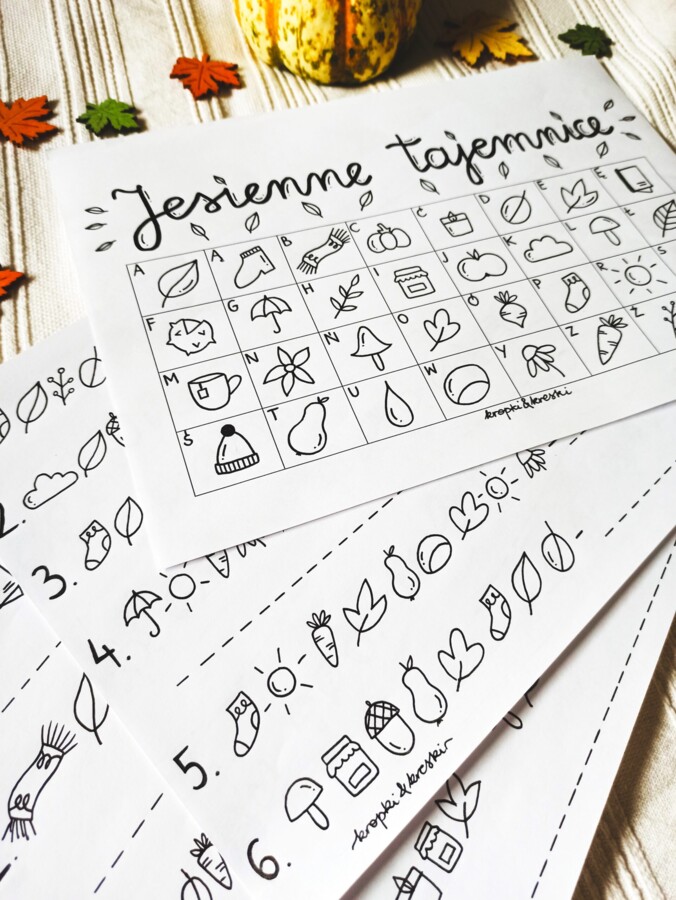 Jesienne tajemnice
A Ą B C Ć D E Ę
F G H I J K L Ł
M N Ń O Ó P R S
Ś T U W Y Z Ź
kropki&kreski
2.
3.
4.
5.
6.
kropki&kreski